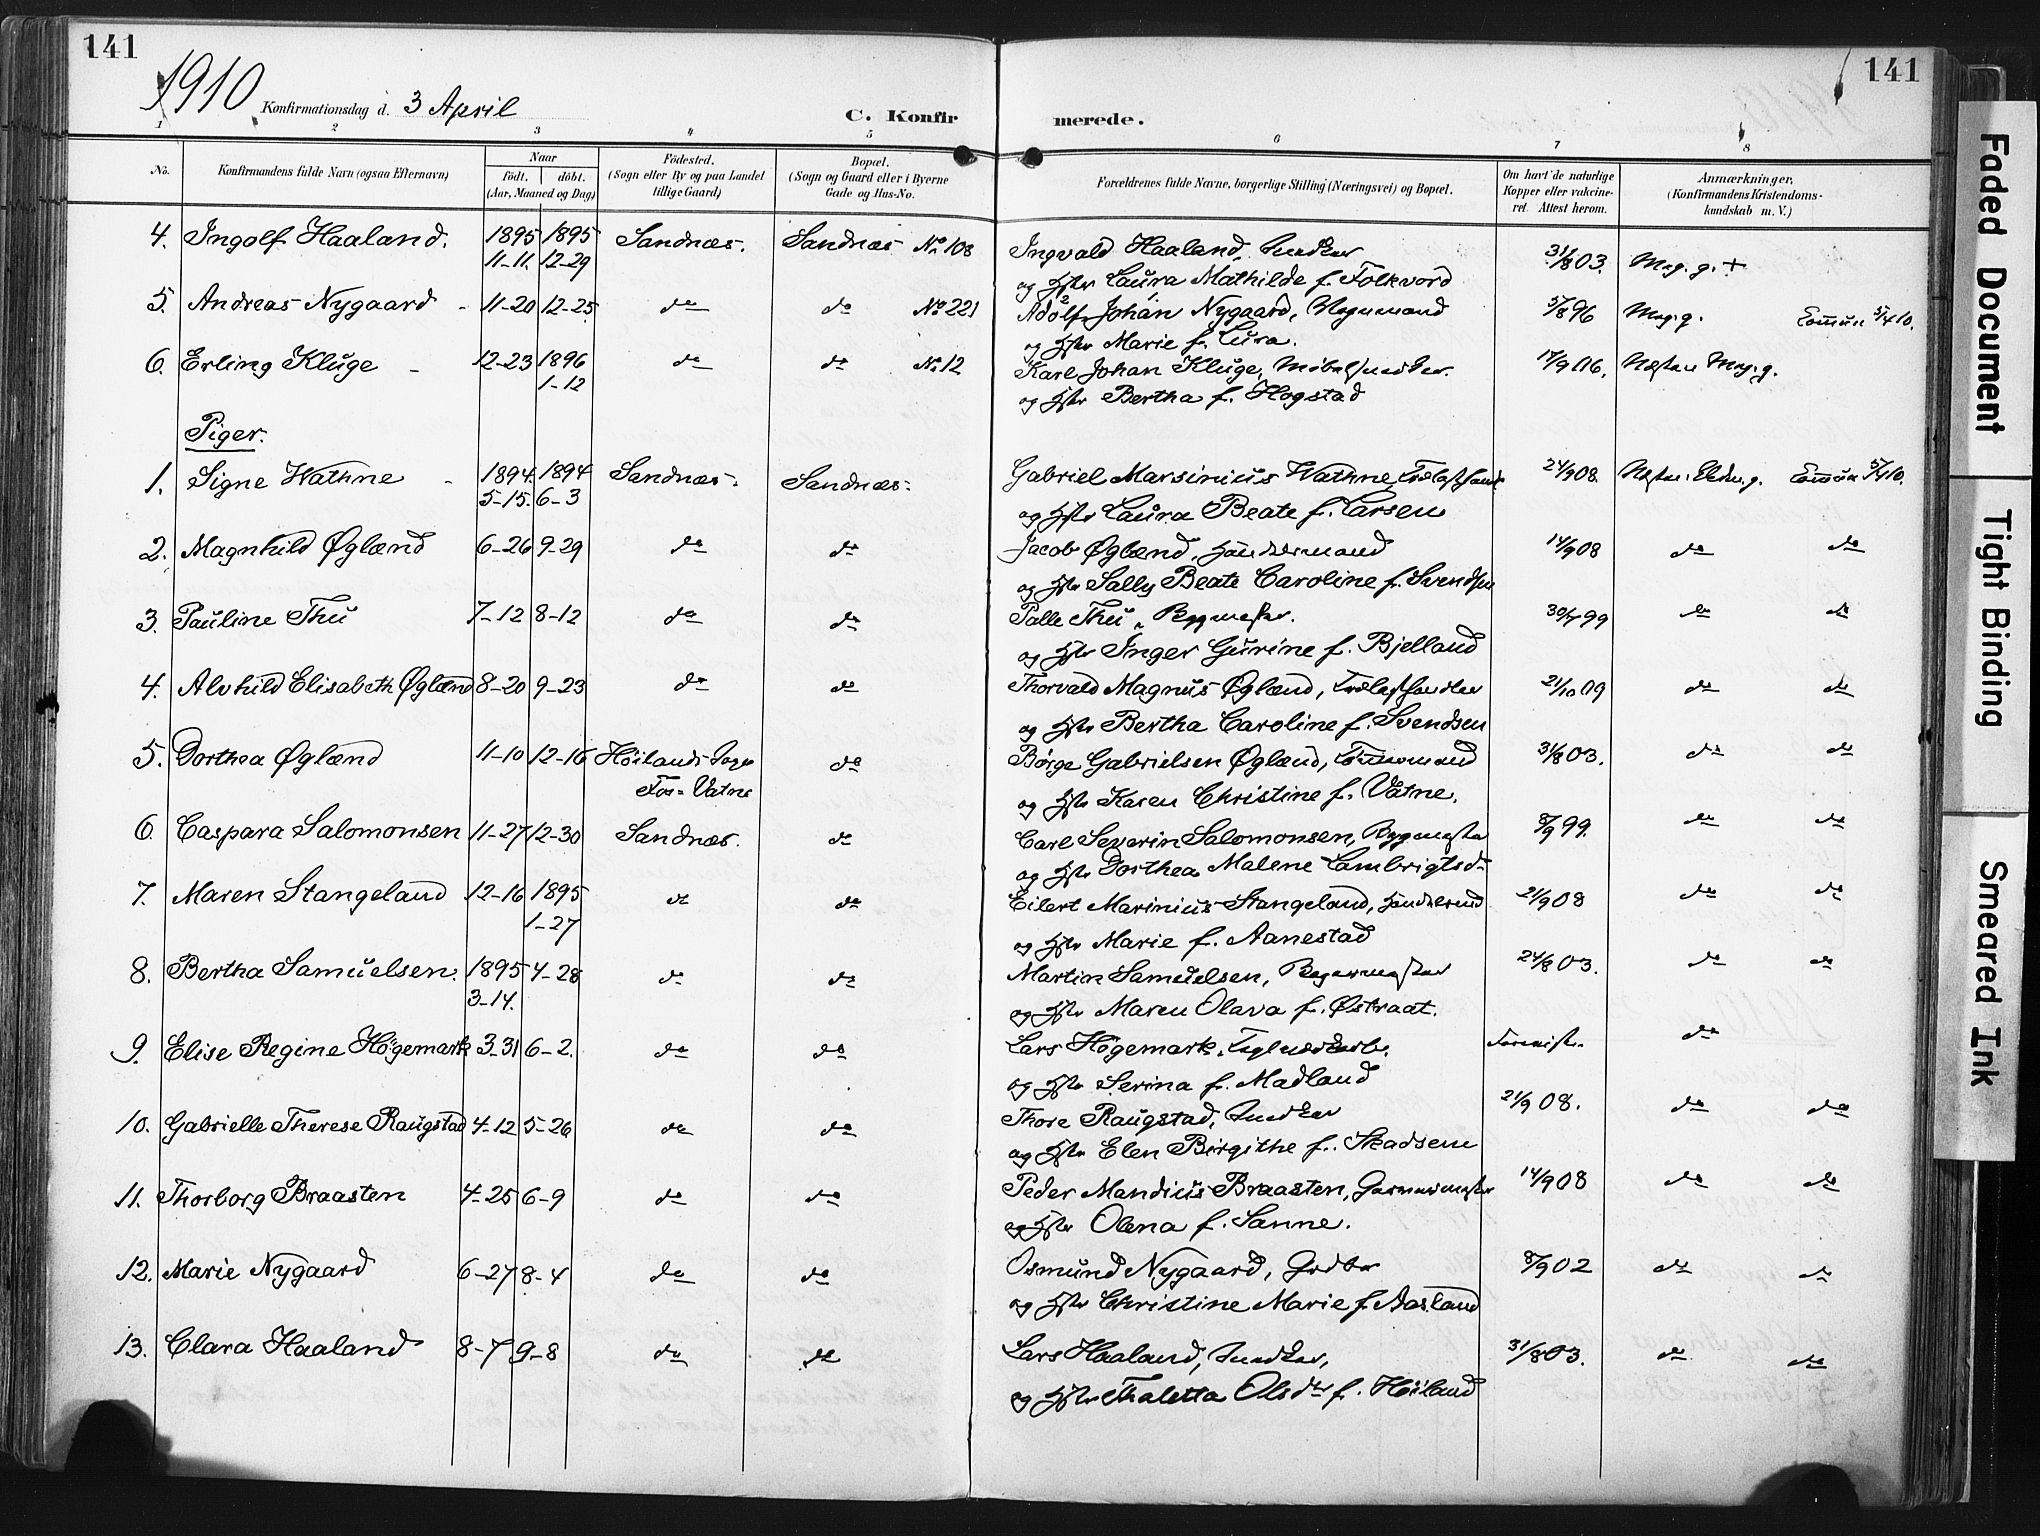 141
141
1910 Konfirmationsdag d. 3 April
C. Konfirmerede.
1 2 3 4 5 6 7 8
No.
Konfirmandens fulde Navn (ogsaa Efternavn)
Naar
födt. döbt.
(Aar, Maaned og Dag)
Födested.
(Sogn eller By og paa Landet
tillige Gaard)
Bopæl.
(Sogn og Gaard eller i Byerne
Gade og Hus-No.
Forældrenes fulde Navne, borgerlige Stilling (Næringsvei) og Bopæl.
Om havt de naturlige
Kopper eller vakcine-
ret. Attest herom.
Anmærkninger,
(Konfirmandens Kristendoms-
kundskab m. V.)
4. Ingolf Haaland. 1895 11-11. 1895 12-29 Sandnæs. Sandnæs No 108 Ingvald Haaland, Snedker 31/8 03. Meg. g. +
og Hstr Laura Mathilde f. Folkvord
5. Andreas Nygaard 11-20 12-25 do do No 221 Adolf Johan Nygaard, Vognmand 5/8 96 Meg. g. 5/4 10.
og Hstr Marie f. Lura.
6. Erling Kluge 12-23 1896 1-12 do do No 12 Karl Johan Kluge, Møbelsnedker. Næsten Meg. g.
og Hstr Bertha f. Hogstad
Piger.
1. Signe Wathne 1894 5-15. 1894 6-3 Sandnæs. Sandnæs. Gabriel Marsinius Wathne, Trælasthandl. 24/9 08. 5/4 10.
og Hstr Laura Beate f. Larsen
2. Magnhild Øglænd 6-26 9-29 do do Jacob Øglænd, Handelsmand 14/9 08 do do
og Hstr Sally Beate Caroline f. Svendsen
3. Pauline Thu 7-12 8-12 do do Palle Thu, Bygmester. do do
og Hstr Inger Gurine f. Bjelland
4. Alvhild Elisabeth Øglænd 8-20 9-23 do do Thorvald Magnus Øglænd, Trælasthandler 21/10 09 do do
og Hstr Bertha Caroline f. Svendsen
5. Dorthea Øglænd 11-10 12-16 Höilands Sogn do Børge Gabrielsen Øglænd, 31/8 03. do do
Fos-Vatne
og Hstr Karen Christine f. Vatne.
6. Caspara Salomonsen 11-27 12-30 Sandnæs. do Carl Severin Salomonsen, Bygmester 8/9 99. do do
og Hstr Dorthea Malene Lambrigtsd.
7. Maren Stangeland 12-16 1895 1-27 do do Eilert Marinius Stangeland, Handelsmd 21/9 08 do do
og Hstr Marie f. Aanestad
8. Bertha Samuelsen. 1895 3-14. 4-28 do do Martin Samuelsen, Bagermester 24/8 03. do do
og Hstr Maren Olava f. Østraat.
9. Elise Regine Högemark 3-31 6-2. do do Lars Högemark, do
og Hstr Serina f. Madland
10. Gabrielle Therese Raugstad 4-12 5-26 do do Thore Raugstad, Snedker 21/9 08. do do
og Hstr Elen Birgithe f. Skadsem
11. Thorborg Braasten 4-25 6-9 do do Peder Mandius Braasten, Garvermester 14/9 08 do do
og Hstr Olena f. Sanne.
12. Marie Nygaard 6-27 8-4 do do Osmund Nygaard, Grdbr 8/9 02 do do
og Hstr Christine Marie f. Aasland
13. Clara Haaland 8-7 9-8 do do Lars Haaland, Snedker, 31/8 03. do do
og Hstr Thaletta Olsdtr f. Höiland
Faded Document
Tight Binding
Smeared Ink